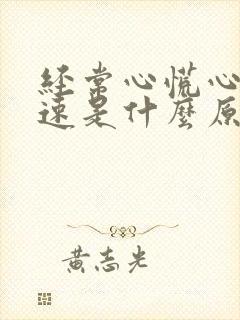 經常心慌心
速是什麼原
黃志光